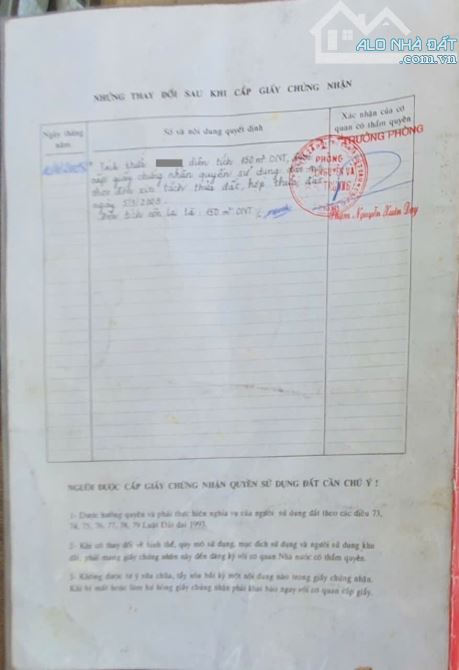 ALO NHÀ ĐẤT
NHỮNG THAY ĐỔI SAU KHI CẤP GIẤY CHỨNG NHẬN
Ngày tháng năm
Số và nội dung quyết định
Xác nhận của cơ quan có thẩm quyền
TRƯỞNG PHÒNG
diện tích 150 m² ONT,
cấp giấy chứng nhận quyền sử dụng đất
theo đơn xin tách thửa đất, hợp thửa đất
ngày
Diện tích còn lại là: 150 m² ONT
PHÒNG
TÀI NGUYÊN VÀ
Phạm Nguyễn Xuân Duy
NGƯỜI ĐƯỢC CẤP GIẤY CHỨNG NHẬN QUYỀN SỬ DỤNG ĐẤT CẦN CHÚ Ý !
1- Được hưởng quyền và phải thực hiện nghĩa vụ của người sử dụng đất theo các điều 73,
74, 75, 76, 77, 78, 79 Luật Đất đai 1993.
2- Khi có thay đổi về hình thể, quy mô sử dụng, mục đích sử dụng và người sử dụng khu
đất, phải mang giấy chứng nhận này đến đăng ký với cơ quan Nhà nước có thẩm quyền.
3- Không được tự ý sửa chữa, tẩy xóa bất kỳ một nội dung nào trong giấy chứng nhận.
Khi bị mất hoặc làm hư hỏng giấy chứng nhận phải khai báo ngay với cơ quan cấp giấy.